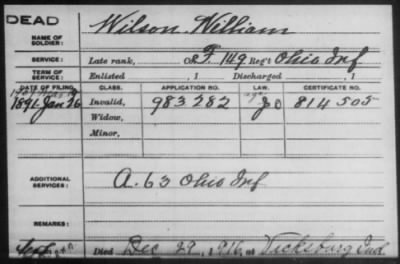 DEAD
NAME OF SOLDIER: Wilson, William
SERVICE: Late rank, F. 149 Reg't Ohio Inf
TERM OF SERVICE: Enlisted , 1 Discharged , 1
DATE OF FILING. CLASS. APPLICATION NO. LAW. CERTIFICATE NO.
1891 Jan 26 Invalid, 983282 814505
Widow,
Minor,
ADDITIONAL SERVICES: A. 63 Ohio Inf
REMARKS:
Died Dec 29, 1916, at Vicksburg Ind.